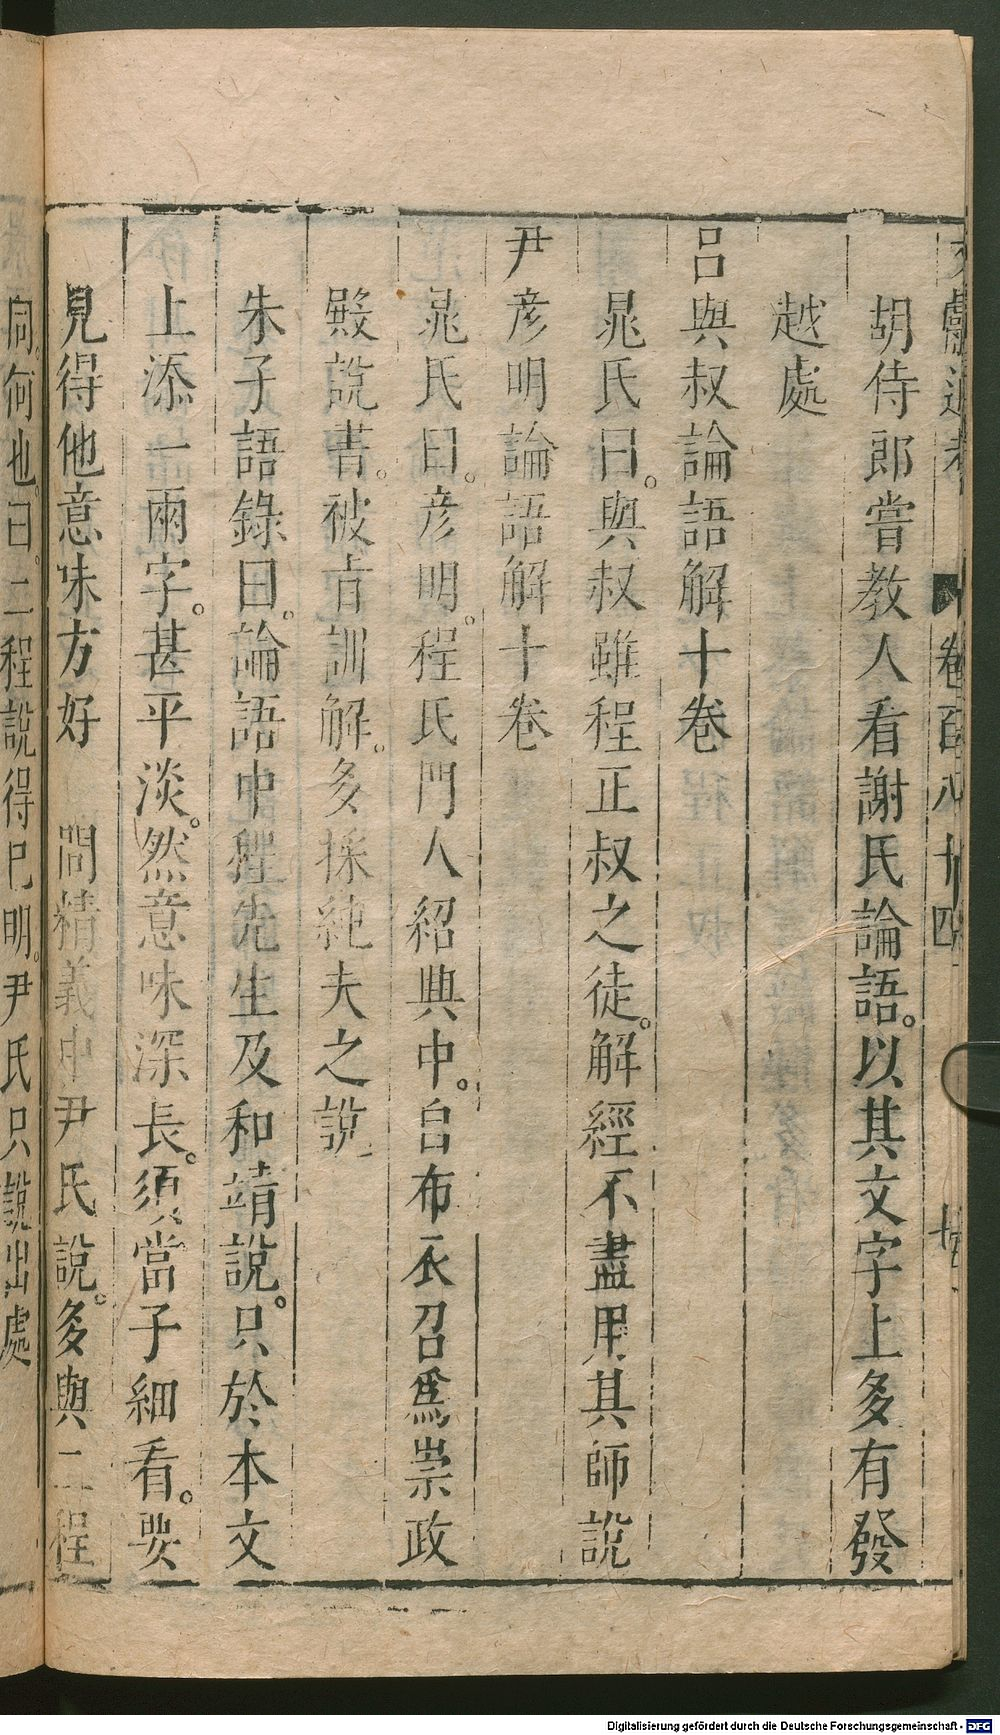 文獻通考 卷百八十四 十五
胡侍郎嘗教人看謝氏論語。以其文字上多有發
越處
呂與叔論語解十卷
晁氏曰。與叔雖程正叔之徒。解經不盡用其師說
尹彥明論語解十卷
晁氏曰。彥明。程氏門人紹興中。自布衣召爲崇政
殿說書。被旨訓解。多採純夫之說
朱子語錄曰。論語中程先生及和靖說。只於本文
上添一兩字。甚平淡。然意味深長。須當子細看。要
見得他意味方好 問精義中尹氏說。多與二程
同。何也。曰。二程說得已明。尹氏只說出處
Digitalisierung gefördert durch die Deutsche Forschungsgemeinschaft - DFG